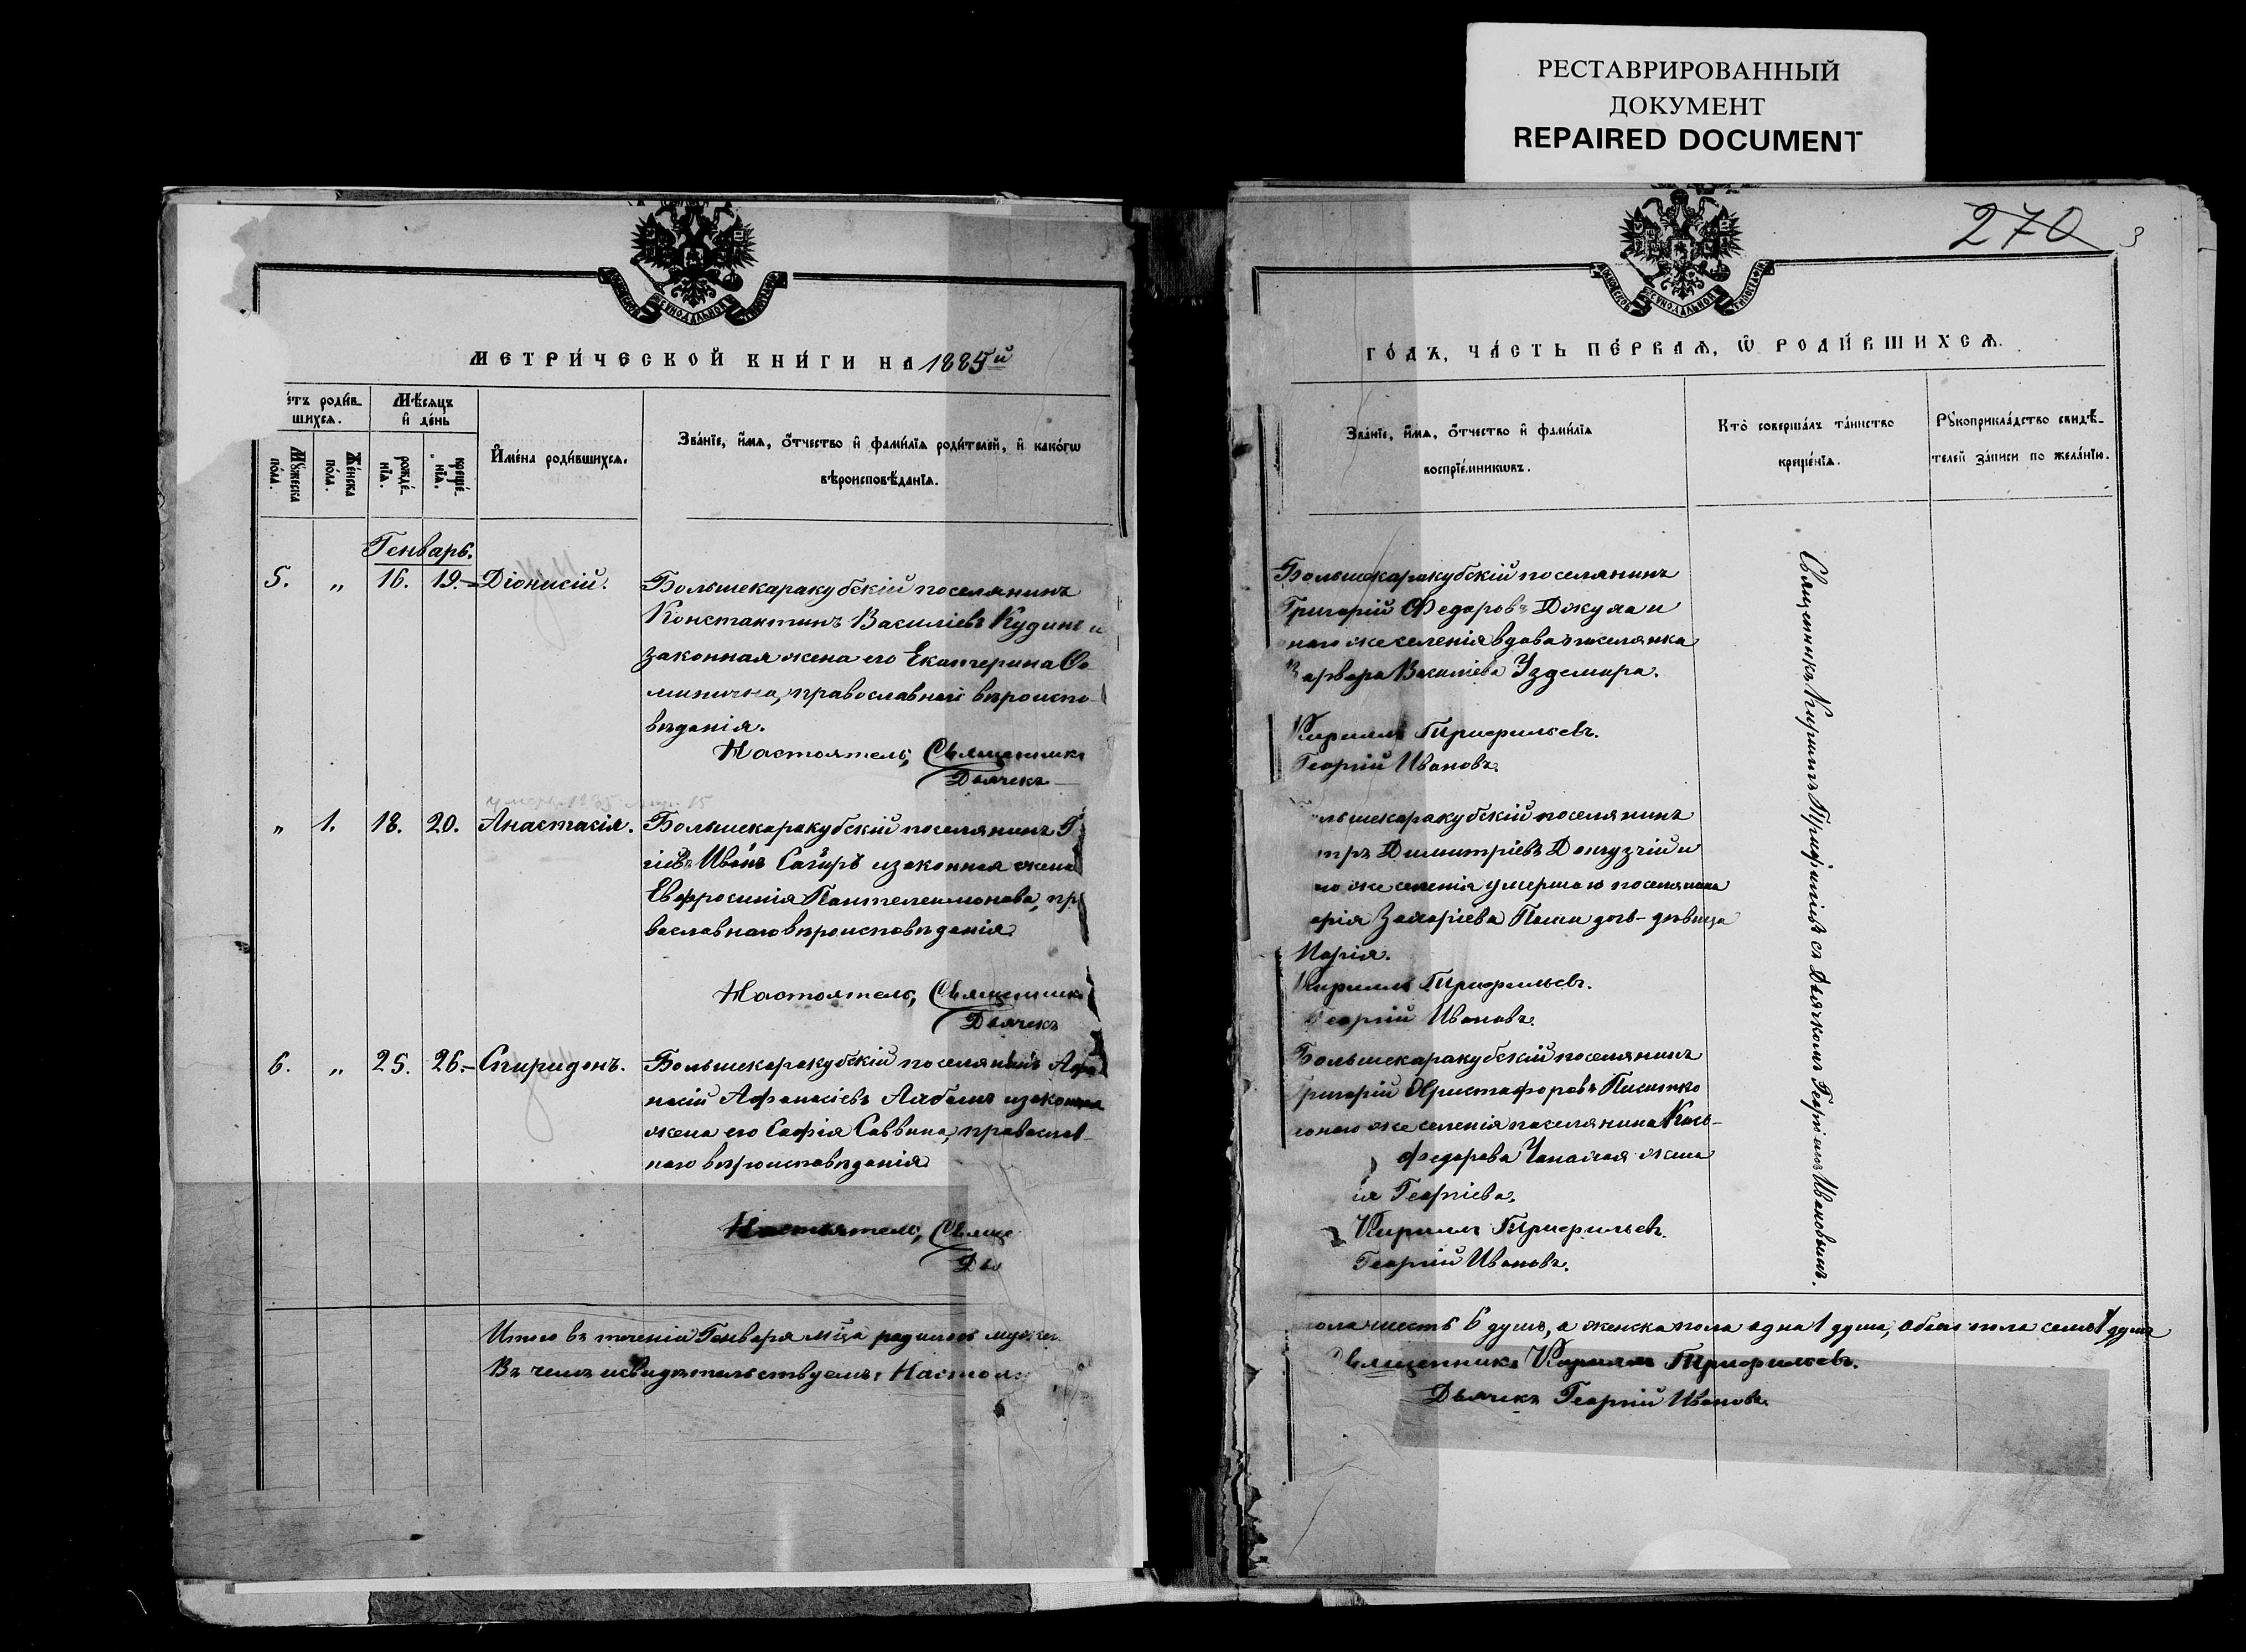 РЕСТАВРИРОВАННЫЙ
ДОКУМЕНТ
REPAIRED DOCUMENT
270
3
МЕТРИ́ЧЕСКОЙ КНИ́ГИ НА 1885й
е́тъ роди́в-
шихсѧ.
Мѣ́сѧцъ
и҆ де́нь
Мꙋ́жеска
по́ла.
Же́нска
по́ла.
рожде́-
нїѧ.
креще́-
нїѧ.
И҆мена̀ роди́вшихсѧ.
Зва́нїе, и҆́мѧ, ѻ҆́тчество и҆ фами́лїѧ роди́телей, и҆ како́гѡ
вѣроисповѣ́данїѧ.
Генварь.
5. „ 16. 19. Діонисій.
Большекаракубскій поселянинъ
Константинъ Василіевъ Кудинъ и
законная жена его Екатерина Ѳо
минична, православнаго вѣроиспо-
вѣданія.
Настоятель, Священникъ
Дьячекъ
„ 1. 18. 20. Анастасія.
Большекаракубскій поселянинъ Г
гіевъ Иванъ Сагиръ и законная жена
Евфросинія Пантелеимонова, пр
вославнаго вѣроисповѣданія.
Настоятель, Священникъ
Дьячекъ
6. „ 25. 26. Спиридонъ.
Большекаракубскій поселянинъ Афа
насій Афанасіевъ Албатъ и законная
жена его Софія Саввина, православ-
наго вѣроисповѣданія.
Настоятель, Свяще
Дья
Итого въ теченіи Генваря мца родилось мужеск
Въ чемъ и свидѣтельствуемъ: Настоя
ГО́ДЪ, ЧА́СТЬ ПЕ́РВАѦ, Ѡ҆ РОДИ́ВШИХСѦ.
Зва́нїе, и҆́мѧ, ѻ҆́тчество и҆ фами́лїѧ
воспрїе́мникѡвъ.
Кто̀ соверша́лъ та́инство
креще́нїѧ.
Рꙋкоприкла́дство свидѣ́-
телей за́писи по жела́нїю.
Большекаракубскій поселянинъ
Григорій Федоровъ Джума и
наго же селенія вдова поселянка
Варвара Василіева Уздемира.
Кирилъ Трифильевъ.
Георгій Ивановъ.
льшекаракубскій поселянинъ
тръ Димитріевъ Донгузгій и
но же селенія умершаго поселянина
оргія Захаріева Паши дочь-дѣвица
Марія.
Кирилъ Трифильевъ.
Георгій Ивановъ.
Большекаракубскій поселянинъ
Григорій Христофоровъ Писитко
и онаго же селенія поселянина
Федорова Чапаная жена
ія Георгіева.
Кирилъ Трифильевъ.
Георгій Ивановъ.
Священникъ Кирилъ Трифильевъ съ Дьячкомъ Георгіемъ Ивановымъ.
пола шесть 6 душъ, а женска пола одна 1 душа, обоего пола семь 7 душъ
Священникъ Кирилъ Трифильевъ.
Дьячекъ Георгій Ивановъ.